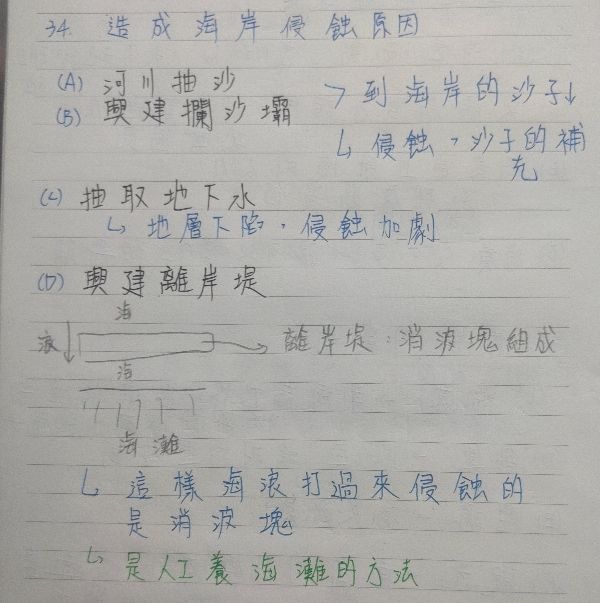 34. 造成海岸侵蝕原因
(A) 河川抽沙
(B) 興建攔沙壩
> 到海岸的沙子↓
↳ 侵蝕>沙子的補
充
(C) 抽取地下水
↳ 地層下陷,侵蝕加劇
(D) 興建離岸堤
海
浪↓
→ 離岸堤:消波塊組成
海
海灘
↳ 這樣海浪打過來侵蝕的
是消波塊
↳ 是人工養海灘的方法